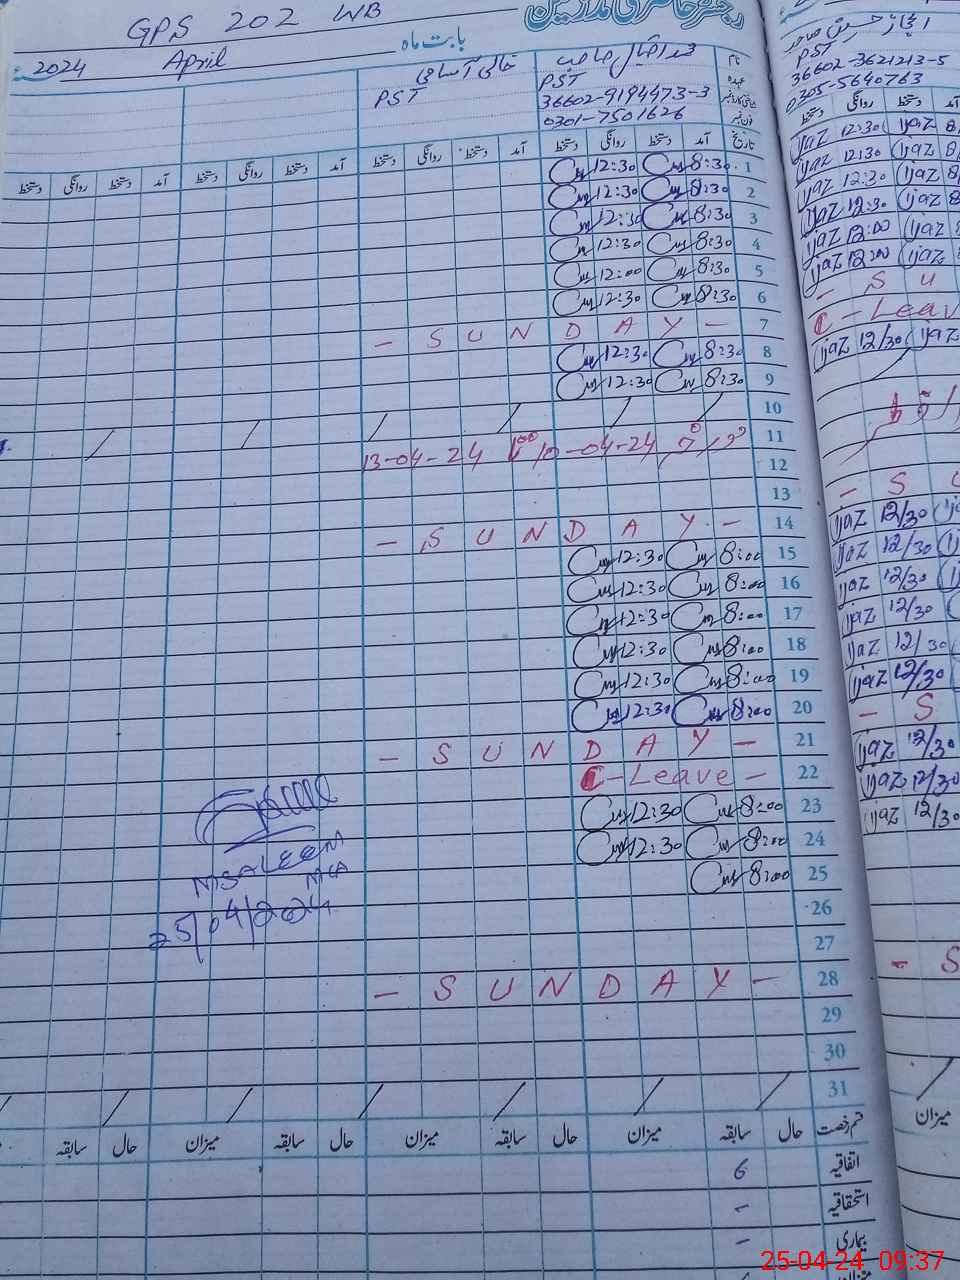 GPS 202 WB
رجسٹر حاضری مدرسین
2024 April بابت ماہ
نام
عہدہ PST PST
36602-9194473-3
0301-7501626
PST
36602-3621213-5
0305-5640763
تاریخ آمد دستخط روانگی دستخط آمد دستخط روانگی دستخط آمد دستخط روانگی دستخط آمد دستخط روانگی دستخط
12:30 8:30 1 ijaz 12:30 ijaz 8
12:30 8:30 2 ijaz 12:30 ijaz 8
12:30 8:30 3 ijaz 12:30 ijaz
12:30 8:30 4 ijaz 12:30 ijaz
12:00 8:30 5 ijaz 12:00 ijaz
12:30 8:30 6 ijaz 12:00 ijaz
- SUNDAY - 7 - S U
12:30 8:30 8 C-Leave
12:30 8:30 9 ijaz 12/30 ijaz
10
11
13-04-24 10-04-24
12
13
- SUNDAY - 14 - S U
12:30 8:00 15 ijaz 12/30
12:30 8:00 16 ijaz 12/30
12:30 8:00 17 ijaz 12/30
12:30 8:00 18 ijaz 12/30
12:30 8:00 19 ijaz 12/30
12:30 8:00 20 ijaz 12/30
- SUNDAY - 21 - S
C-Leave - 22 ijaz 12/30
12:30 8:00 23 ijaz 12/30
12:30 8:00 24 ijaz 12/30
8:00 25
MSALEEM
MEA
25/04/2024
26
27
- SUNDAY - 28 - S
29
30
31
قسم رخصت حال سابقہ میزان حال سابقہ میزان حال سابقہ میزان حال سابقہ میزان
اتفاقیہ 6
استحقاقیہ -
بیماری -
25-04-24 09:37